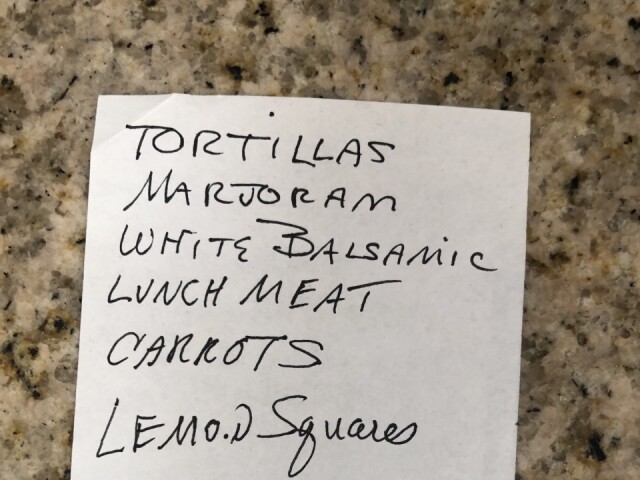 TORTILLAS
MARJORAM
WHITE BALSAMIC
LUNCH MEAT
CARROTS
LEMON Squares